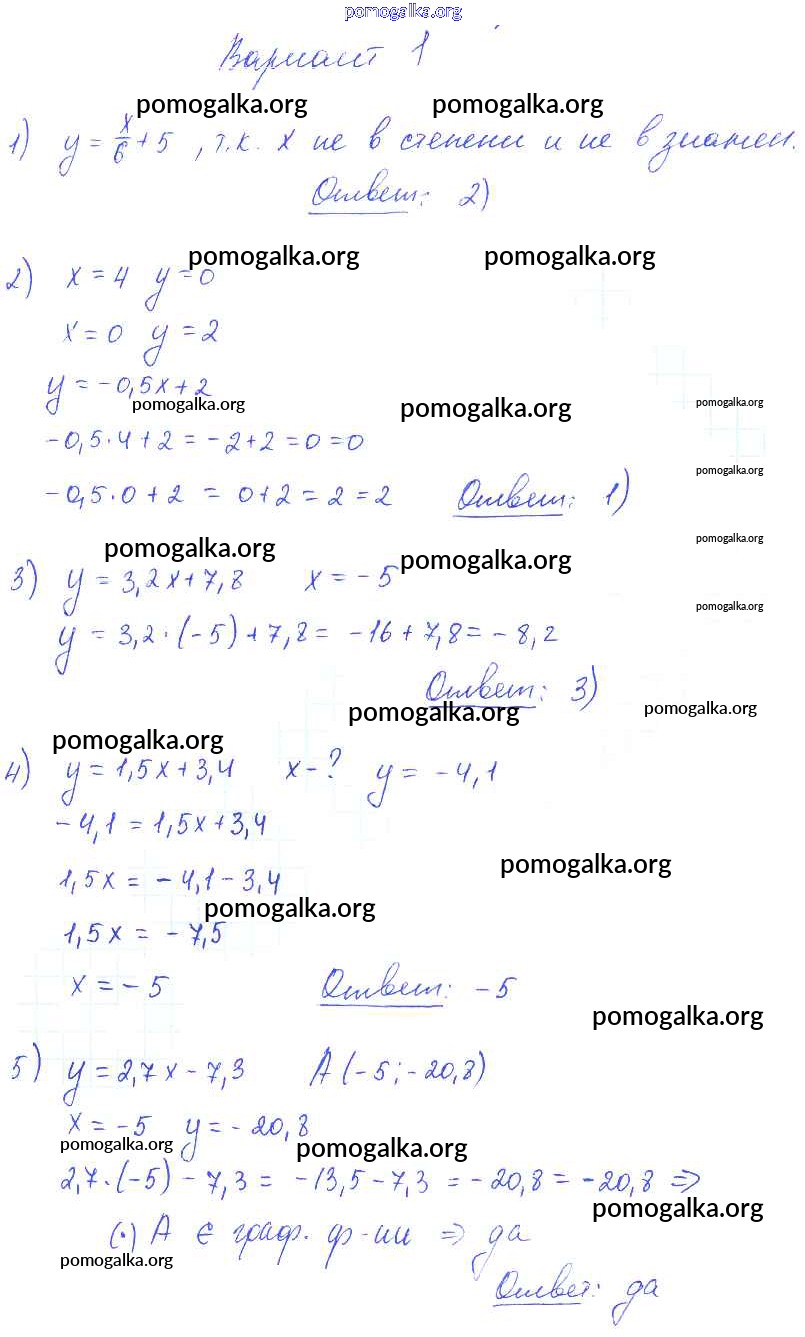 pomogalka.org
Вариант 1
pomogalka.org pomogalka.org
1) y = x/6 + 5 , т.к. x не в степени и не в знамен.
Ответ: 2)
pomogalka.org pomogalka.org
2) x = 4 y = 0
x = 0 y = 2
y = -0,5x + 2
pomogalka.org pomogalka.org pomogalka.org
-0,5·4 + 2 = -2 + 2 = 0 = 0
pomogalka.org
-0,5·0 + 2 = 0 + 2 = 2 = 2 Ответ: 1)
pomogalka.org
pomogalka.org pomogalka.org
3) y = 3,2x + 7,8 x = -5
pomogalka.org
y = 3,2·(-5) + 7,8 = -16 + 7,8 = -8,2
Ответ: 3)
pomogalka.org pomogalka.org
pomogalka.org
4) y = 1,5x + 3,4 x - ? y = -4,1
-4,1 = 1,5x + 3,4
pomogalka.org
1,5x = -4,1 - 3,4
pomogalka.org
1,5x = -7,5
x = -5 Ответ: -5
pomogalka.org
5) y = 2,7x - 7,3 A (-5; -20,8)
x = -5 y = -20,8
pomogalka.org pomogalka.org
2,7·(-5) - 7,3 = -13,5 - 7,3 = -20,8 = -20,8 ⇒
pomogalka.org
(·) A ∈ граф. ф-ии ⇒ да
pomogalka.org
Ответ: да